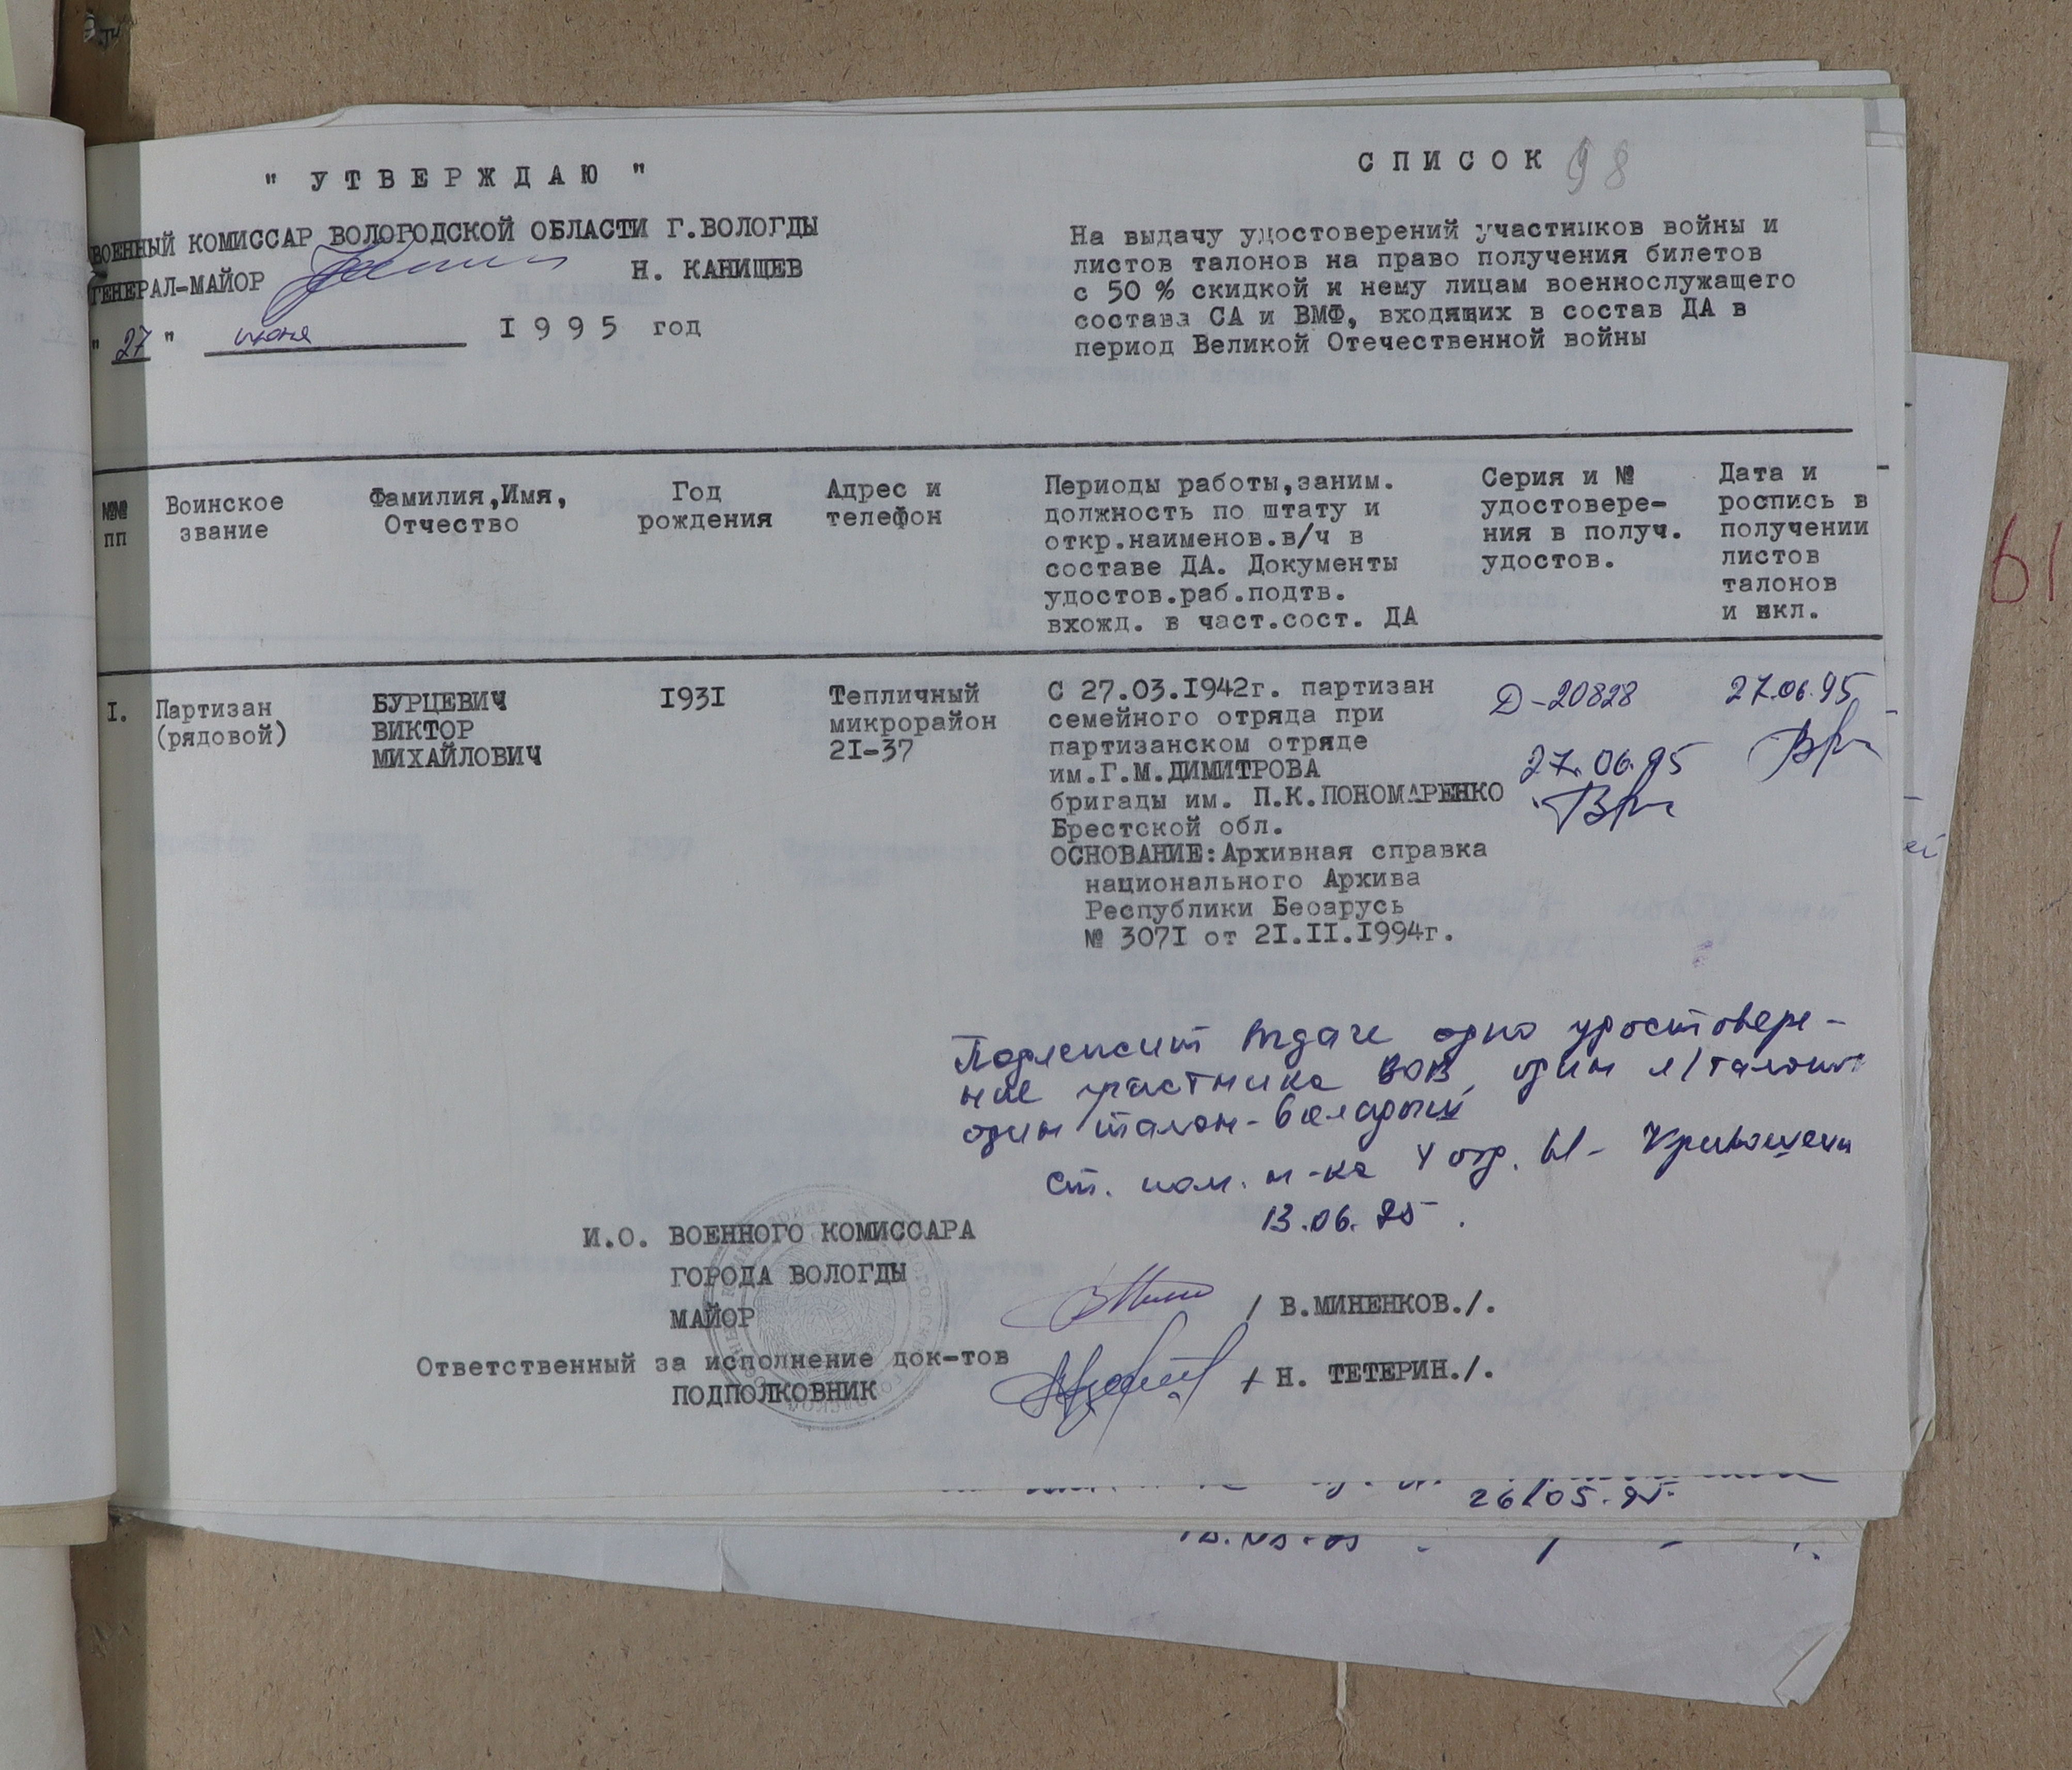 " У Т В Е Р Ж Д А Ю "
ВОЕННЫЙ КОМИССАР ВОЛОГОДСКОЙ ОБЛАСТИ Г.ВОЛОГДЫ
ГЕНЕРАЛ-МАЙОР Н. КАНИЩЕВ
" 27 " июня I 9 9 5 год
С П И С О К 98
На выдачу удостоверений участников войны и
листов талонов на право получения билетов
с 50 % скидкой и нему лицам военнослужащего
состава СА и ВМФ, входящих в состав ДА в
период Великой Отечественной войны
№№
пп
Воинское
звание
Фамилия,Имя,
Отчество
Год
рождения
Адрес и
телефон
Периоды работы,заним.
должность по штату и
откр.наименов.в/ч в
составе ДА. Документы
удостов.раб.подтв.
вхожд. в част.сост. ДА
Серия и №
удостовере-
ния в получ.
удостов.
Дата и
роспись в
получении
листов
талонов
и вкл.
I.
Партизан
(рядовой)
БУРЦЕВИЧ
ВИКТОР
МИХАЙЛОВИЧ
I93I
Тепличный
микрорайон
2I-37
С 27.03.I942г. партизан
семейного отряда при
партизанском отряде
им.Г.М.ДИМИТРОВА
бригады им. П.К.ПОНОМАРЕНКО
Брестской обл.
ОСНОВАНИЕ:Архивная справка
национального Архива
Республики Беоарусь
№ 307I от 2I.II.I994г.
Д-20828
27.06.95
27.06.95
Подлежит выдаче одно удостовере-
ние участника ВОВ, один л/талонов
один талон-вкладыш
ст. пом. н-ка 4 отд.
13.06.95.
И.О. ВОЕННОГО КОМИССАРА
ГОРОДА ВОЛОГДЫ
МАЙОР / В.МИНЕНКОВ./.
Ответственный за исполнение док-тов
ПОДПОЛКОВНИК / Н. ТЕТЕРИН./.
26/05.95.
61